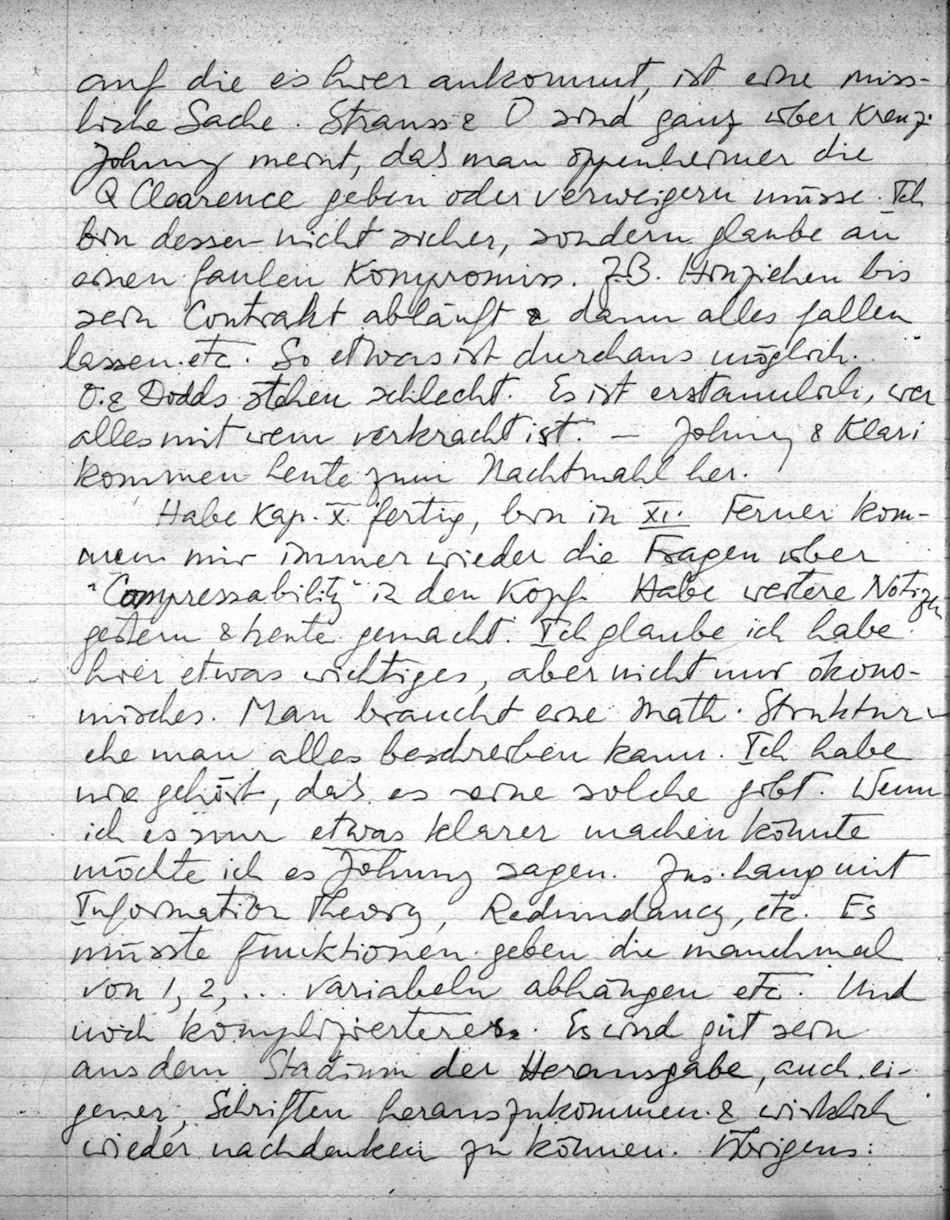 auf die es hier ankommt, ist eine miss-
liche Sache. Strauss & O sind ganz über Kreuz.
Johnny meint, das man Oppenheimer die
Q Clearence geben oder verweigern müsse. Ich
bin dessen nicht sicher, sondern glaube an
einen faulen Kompromiss. Z.B. Hinziehen bis
sein Contrakt abläuft & dann alles fallen
lassen etc. So etwas ist durchaus möglich.
O. & Dodds stehen schlecht. Es ist erstaunlich, wer
alles mit wem verkracht ist. — Johnny & Klari
kommen heute zum Nachtmahl her.
Habe Kap. X. fertig, bin in XI. Ferner kom-
men mir immer wieder die Fragen über
"Compressability" in den Kopf. Habe weitere Notizen
gestern & heute gemacht. Ich glaube ich habe
hier etwas wichtiges, aber nicht nur ökono-
misches. Man braucht eine Math. Struktur
ehe man alles beschreiben kann. Ich habe
nie gehört, das es eine solche gibt. Wenn
ich es nur etwas klarer machen könnte
möchte ich es Johnny sagen. Zus.hang mit
Information Theory, Redundancy, etc. Es
müsste Funktionen geben die manchmal
von 1, 2, ... Variabeln abhängen etc. Und
noch komplizierteres. Es wird gut sein
aus dem Stadium der Herausgabe, auch ei-
gener, Schriften herauszukommen & wirklich
wieder nachdenken zu können. Übrigens: